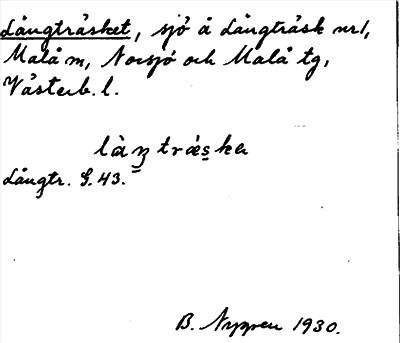 Långträsket, sjö å Långträsk nr 1,
Malå m, Norsjö och Malå tg,
Västerb. l.
Långtr. G. 43.
B. Nygren 1930.